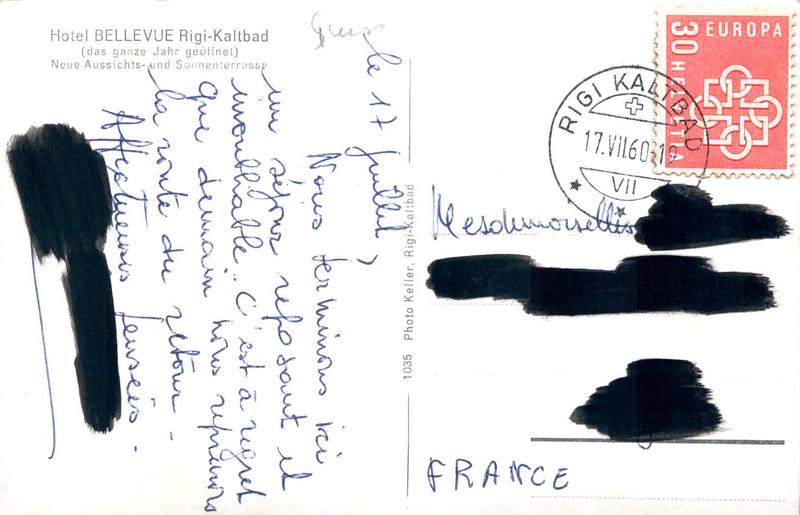 Hotel BELLEVUE Rigi-Kaltbad
(das ganze Jahr geöffnet)
Neue Aussichts- und Sonnenterrasse
le 17 juillet,
Nous terminons ici
un séjour reposant et
inoubliable. C'est à regret
que demain nous reprenons
la route du retour -
Affectueuses pensées.
1035 Photo Keller, Rigi-Kaltbad
EUROPA
30 HELVETIA
RIGI KALTBAD
17.VII.60-19
VII
Mesdemoiselles
FRANCE